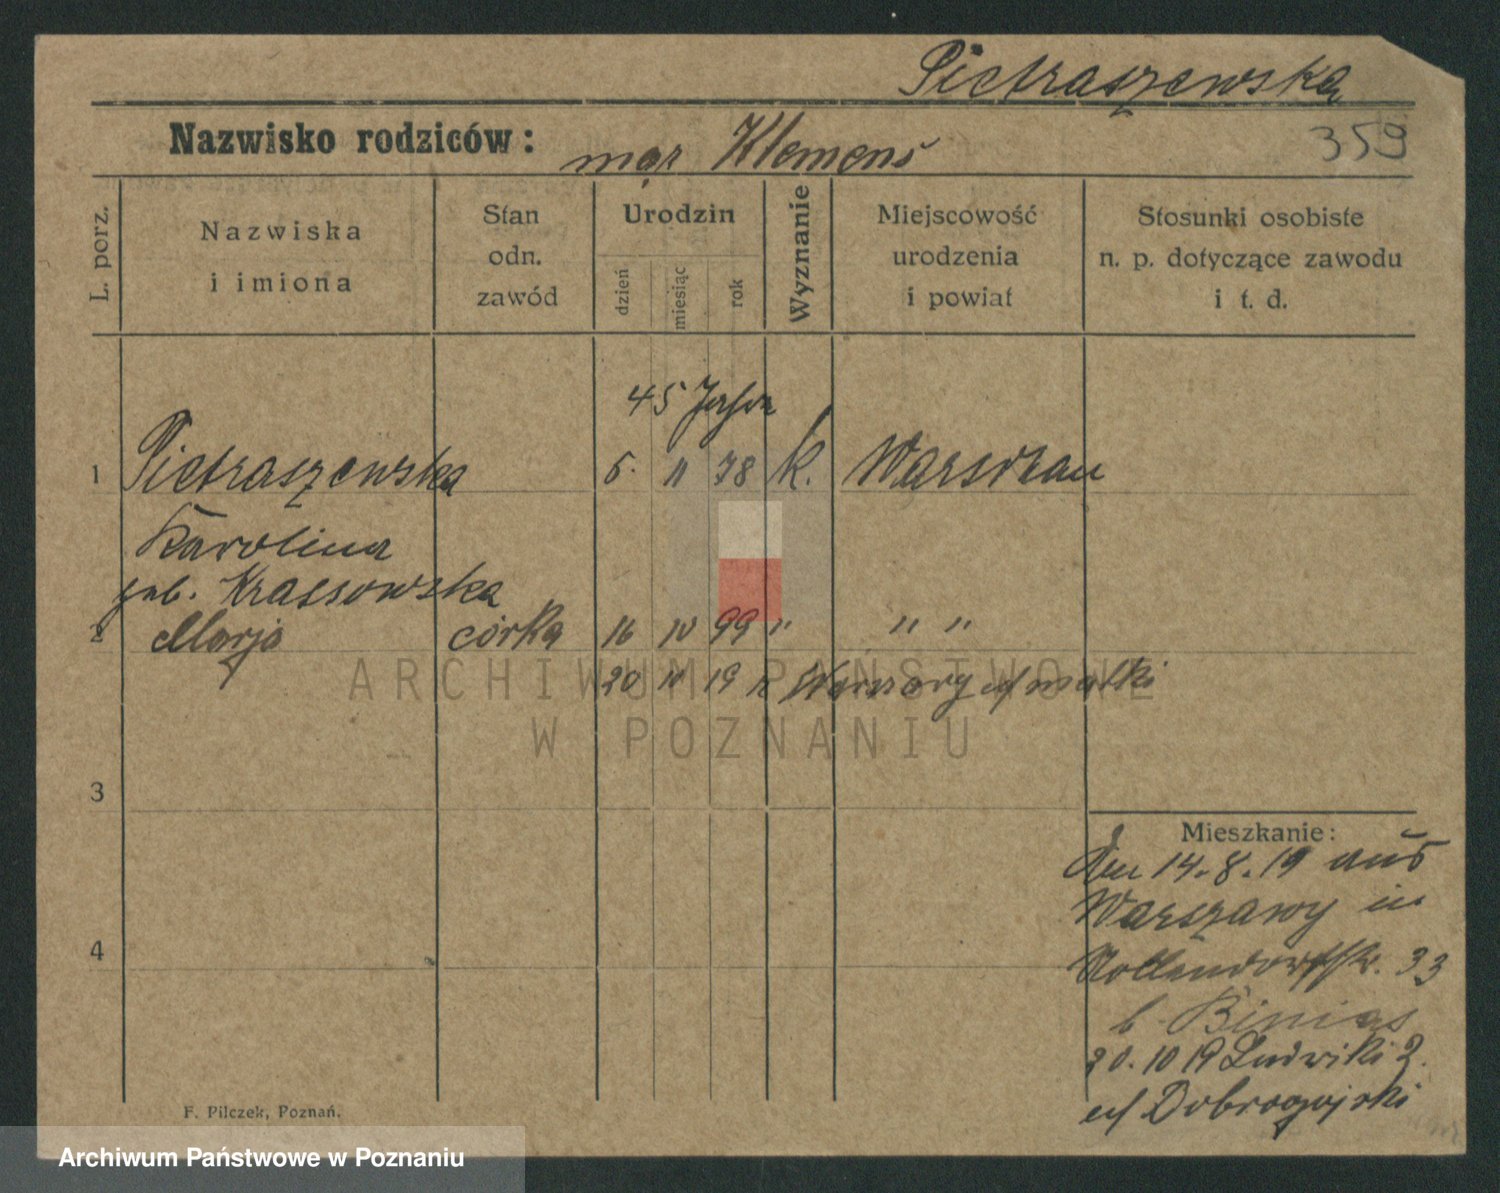 Pietraszewska
Nazwisko rodziców: mąż Klemens 359
L. porz.
Nazwiska i imiona
Stan odn. zawód
Urodzin
dzień miesiąc rok
Wyznanie
Miejscowość urodzenia i powiat
Stosunki osobiste n. p. dotyczące zawodu i t. d.
45
1 Pietraszewska 5. 11 78 k. Warschau
Karolina
geb. Krassowska
2 Marja córka 16 10 99 " " "
20 10 19 Warszawy matki
ARCHIWUM PAŃSTWOWE
W POZNANIU
3
Mieszkanie:
den 14.8.19 aus
Warszawy in
Nollendorfstr. 33
b. Binias
4
20.10 19 Ludwiki 2.
Dobrogojski
F. Pilczek, Poznań.
Archiwum Państwowe w Poznaniu